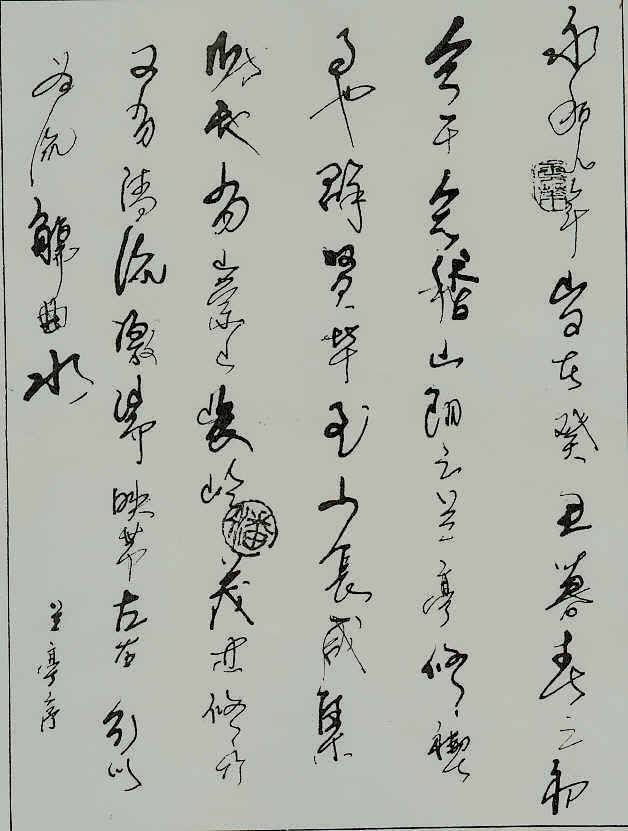 永和九年岁在癸丑暮春之初
会于会稽山阴之兰亭修禊
事也群贤毕至少長咸集
此地有崇山峻岭茂林修竹
又有清流激湍映带左右引以
为流觞曲水
兰亭序
潘